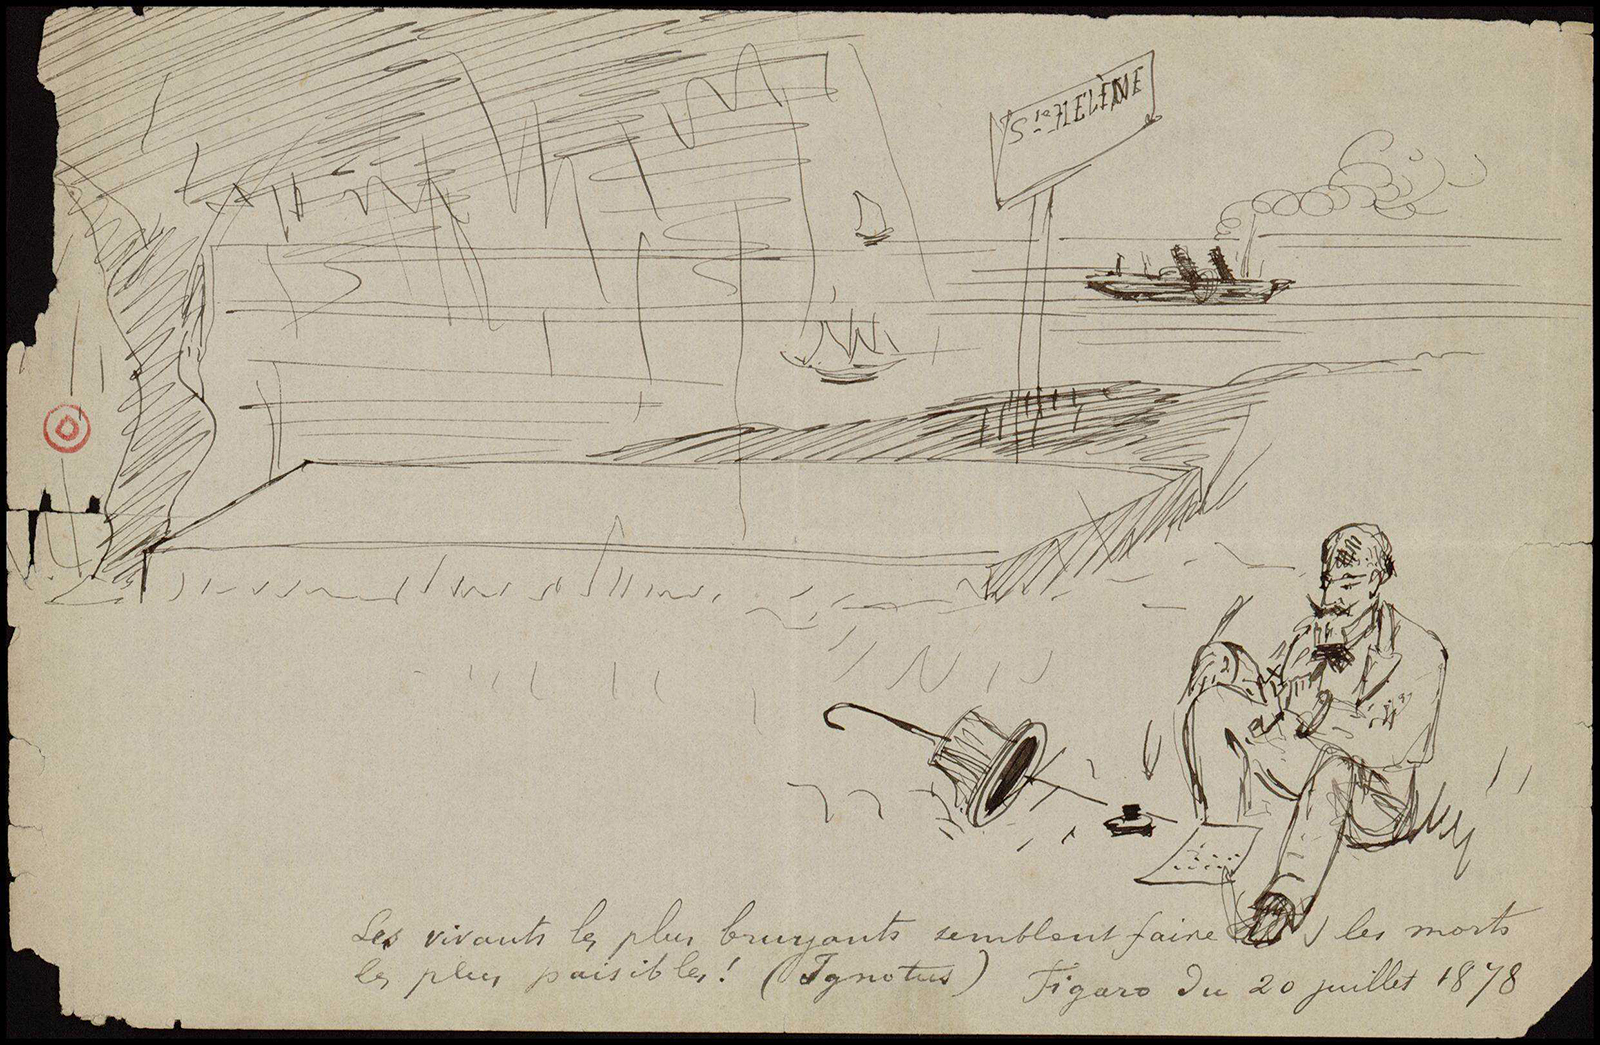 Ste HELÈNE
Les vivants les plus bruyants semblent faire les morts
les plus paisibles! (Ignotus) Figaro du 20 juillet 1878